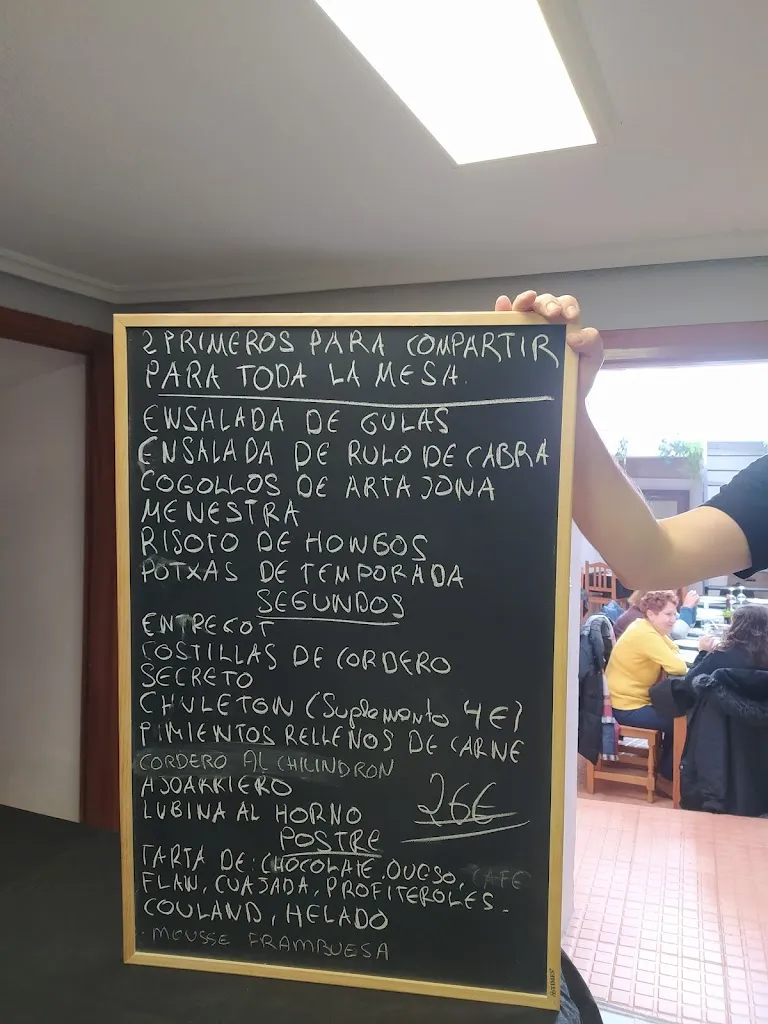 2 PRIMEROS PARA COMPARTIR
PARA TODA LA MESA.
ENSALADA DE GULAS
ENSALADA DE RULO DE CABRA
COGOLLOS DE ARTAJONA
MENESTRA
RISOTO DE HONGOS
POTXAS DE TEMPORADA
SEGUNDOS
ENTRECOT
COSTILLAS DE CORDERO
SECRETO
CHULETON (Suplemento 4€)
PIMIENTOS RELLENOS DE CARNE
CORDERO AL CHILINDRON
AJOARRIERO
26€
LUBINA AL HORNO
POSTRE
TARTA DE: CHOCOLATE, QUESO, CAFE
FLAN, CUAJADA, PROFITEROLES.
COULAND, HELADO
MOUSSE FRAMBUESA